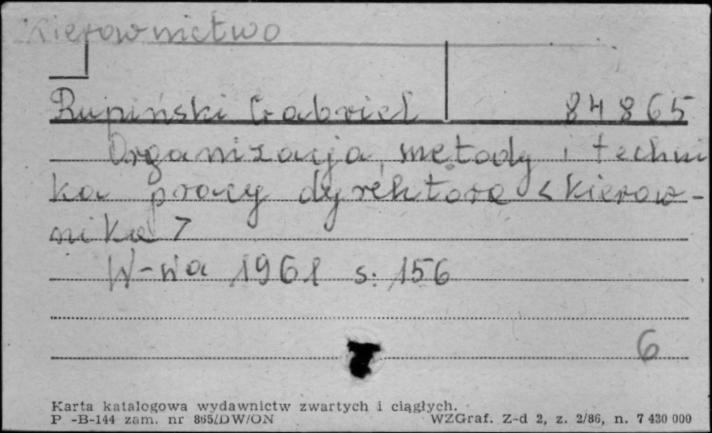 Kierownictwo
Rupiński Gabriel 84865
Organizacja, metody i techni
ka pracy dyrektora <kierow-
nika>
W-wa 1961 s. 156
6
Karta katalogowa wydawnictw zwartych i ciągłych.
P -B-144 zam. nr 865/DW/ON WZGraf. Z-d 2, z. 2/86, n. 7 430 000